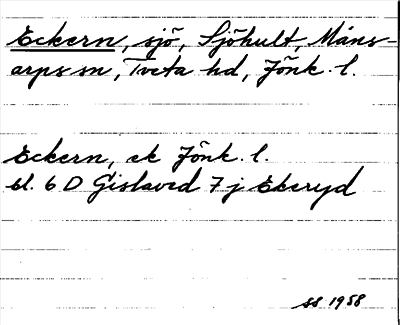 Eckern, sjö, Sjöhult, Måns-
arps sn, Tveta hd, Jönk. l.
Eckern, ek Jönk. l.
bl. 6 D Gislaved 7 j Ekeryd
SS 1958